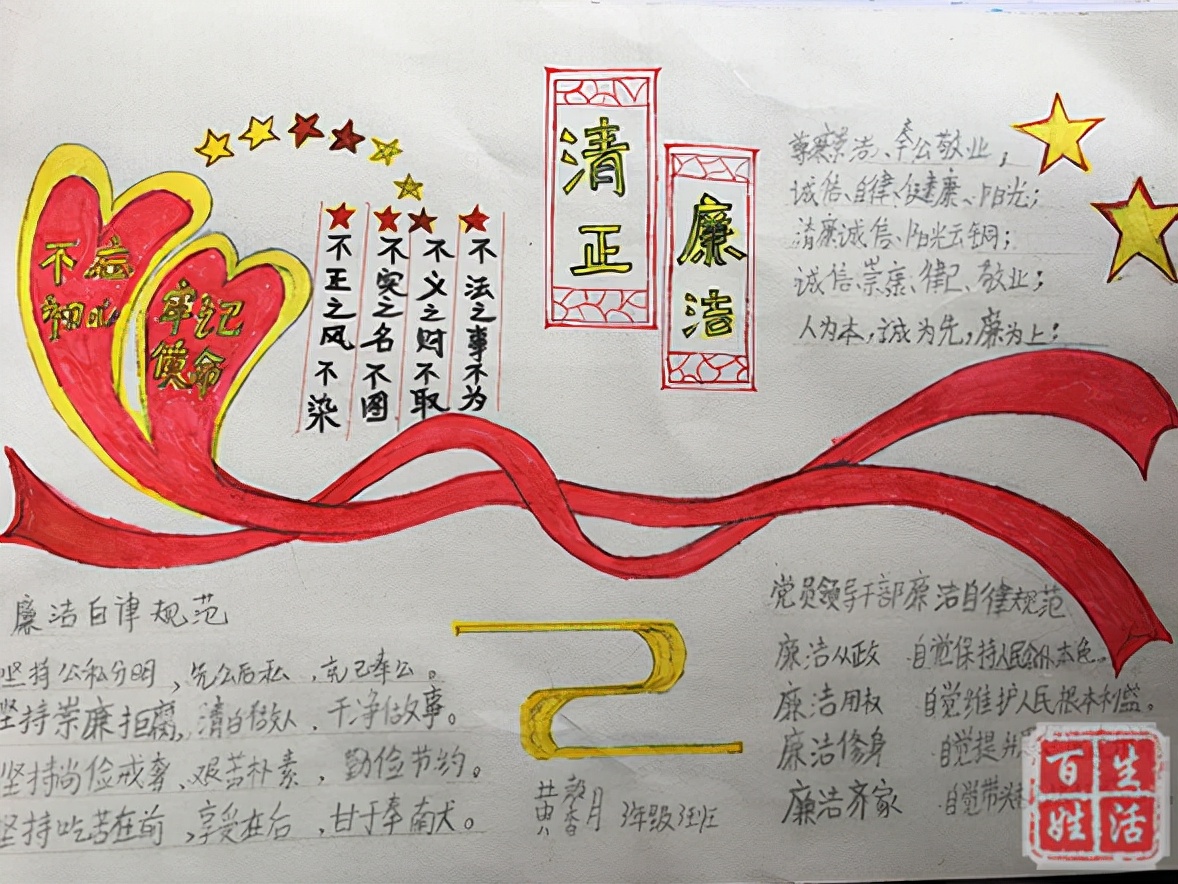 清正
廉洁
不忘
初心
牢记
使命
不正之风不染
不实之名不图
不义之财不取
不法之事不为
洁、奉公敬业；
诚信、自律、健康、阳光；
清廉诚信、阳光云铜；
诚信、崇廉、律己、敬业；
人为本，诚为先，廉为上；
廉洁自律规范
坚持公私分明，先公后私，克己奉公。
坚持崇廉拒腐，清白做人，干净做事。
坚持尚俭戒奢，艰苦朴素，勤俭节约。
坚持吃苦在前，享受在后，甘于奉南犬。
党员领导干部廉洁自律规范
廉洁从政 自觉保持人民本色。
廉洁用权 自觉维护人民根本利益。
廉洁修身 自觉提升
廉洁齐家 自觉带头
月 班
百姓生活